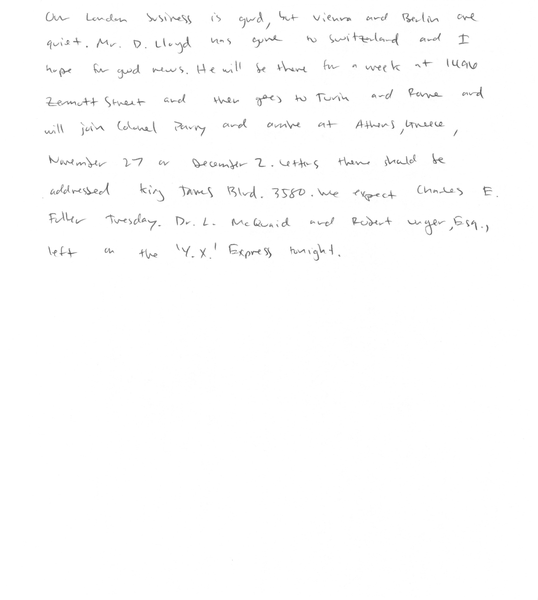 Our London business is good, but Vienna and Berlin are
quiet. Mr. D. Lloyd has gone to Switzerland and I
hope for good news. He will be there for a week at 1496
Zermott Street and then goes to Turin and Rome and
will join Colonel Parry and arrive at Athens, Greece,
November 27 or December 2. Letters there should be
addressed King James Blvd. 3580. We expect Charles E.
Fuller Tuesday. Dr. L. McQuaid and Robert Unger, Esq.,
left on the 'Y.X.' Express tonight.